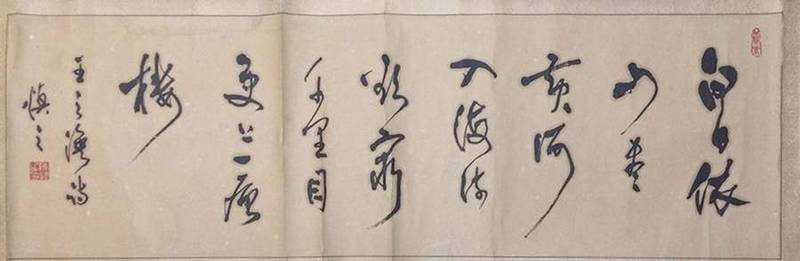 白日依
山尽
黄河
入海流
欲穷
千里目
更上一层
楼
王之涣诗
慎之